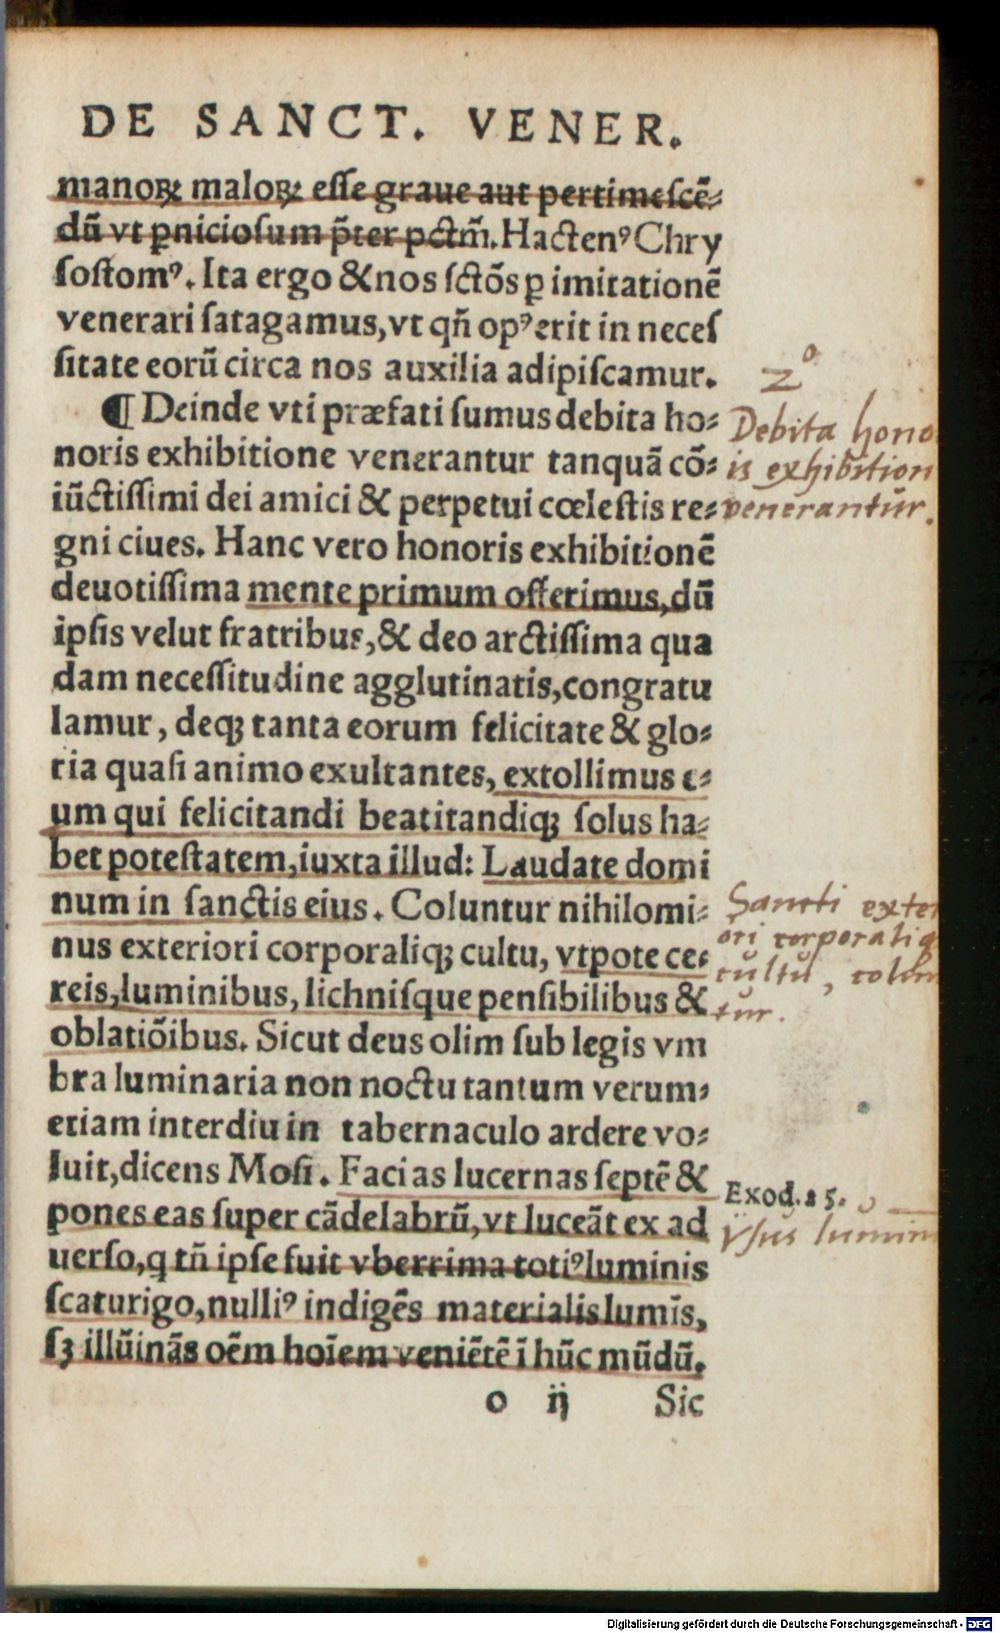 DE SANCT. VENER.
manoꝝ maloꝝ esse graue aut pertimescē⸗
dū vt ꝑniciosum p̄ter pctm̄. Hactenꝰ Chry
sostomꝰ. Ita ergo & nos sctōs ꝑ imitationē
venerari satagamus, vt qn̄ opꝰ erit in neces
sitate eorū circa nos auxilia adipiscamur.
¶ Deinde vti præfati sumus debita ho⸗
noris exhibitione venerantur tanquā cō⸗
iūctissimi dei amici & perpetui cœlestis re⸗
gni ciues. Hanc vero honoris exhibitionē
deuotissima mente primum offerimus, dū
ipsis velut fratribus, & deo arctissima qua
dam necessitudine agglutinatis, congratu
lamur, deqꝫ tanta eorum felicitate & glo⸗
ria quasi animo exultantes, extollimus e⸗
um qui felicitandi beatitandiqꝫ solus ha⸗
bet potestatem, iuxta illud: Laudate domi
num in sanctis eius. Coluntur nihilomi⸗
nus exteriori corporaliqꝫ cultu, vtpote ce⸗
reis, luminibus, lichnisque pensibilibus &
oblatiōibus. Sicut deus olim sub legis vm
bra luminaria non noctu tantum verum⸗
etiam interdiu in tabernaculo ardere vo⸗
luit, dicens Mosi. Facias lucernas septē &
pones eas super cādelabrū, vt luceāt ex ad
uerso, q tn̄ ipse fuit vberrima totiꝰ luminis
scaturigo, nulliꝰ indigēs materialis lumīs,
sꝫ illūinās oēm hoīem veniētē ī hūc mūdū.
o ij Sic
2º
Debita hono
is exhibition
venerantur.
Sancti exter
ori corporaliq
cultu, colun
tur.
Exod. 25.
Vsus lumin